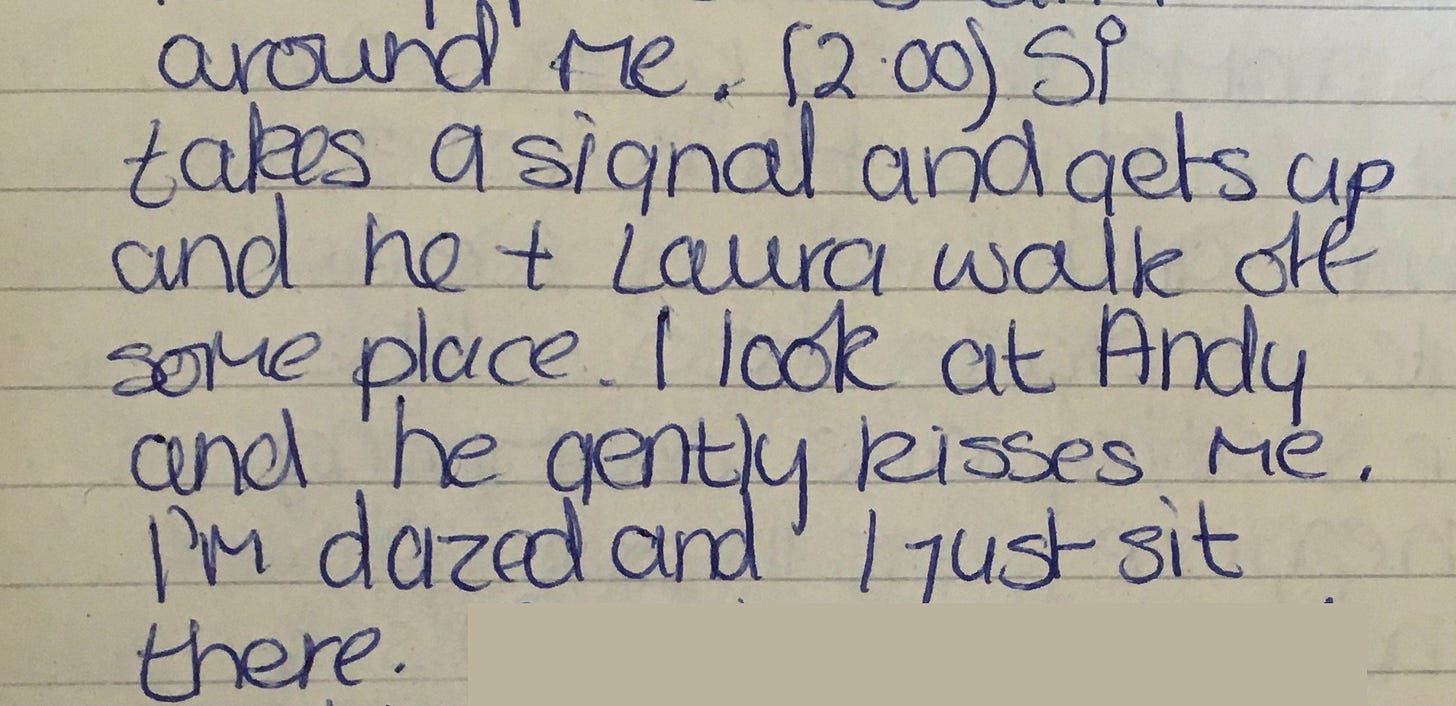 around me. (2.00) Si
takes a signal and gets up
and he + Laura walk off
some place. I look at Andy
and he gently kisses me.
I'm dazed and I just sit
there.